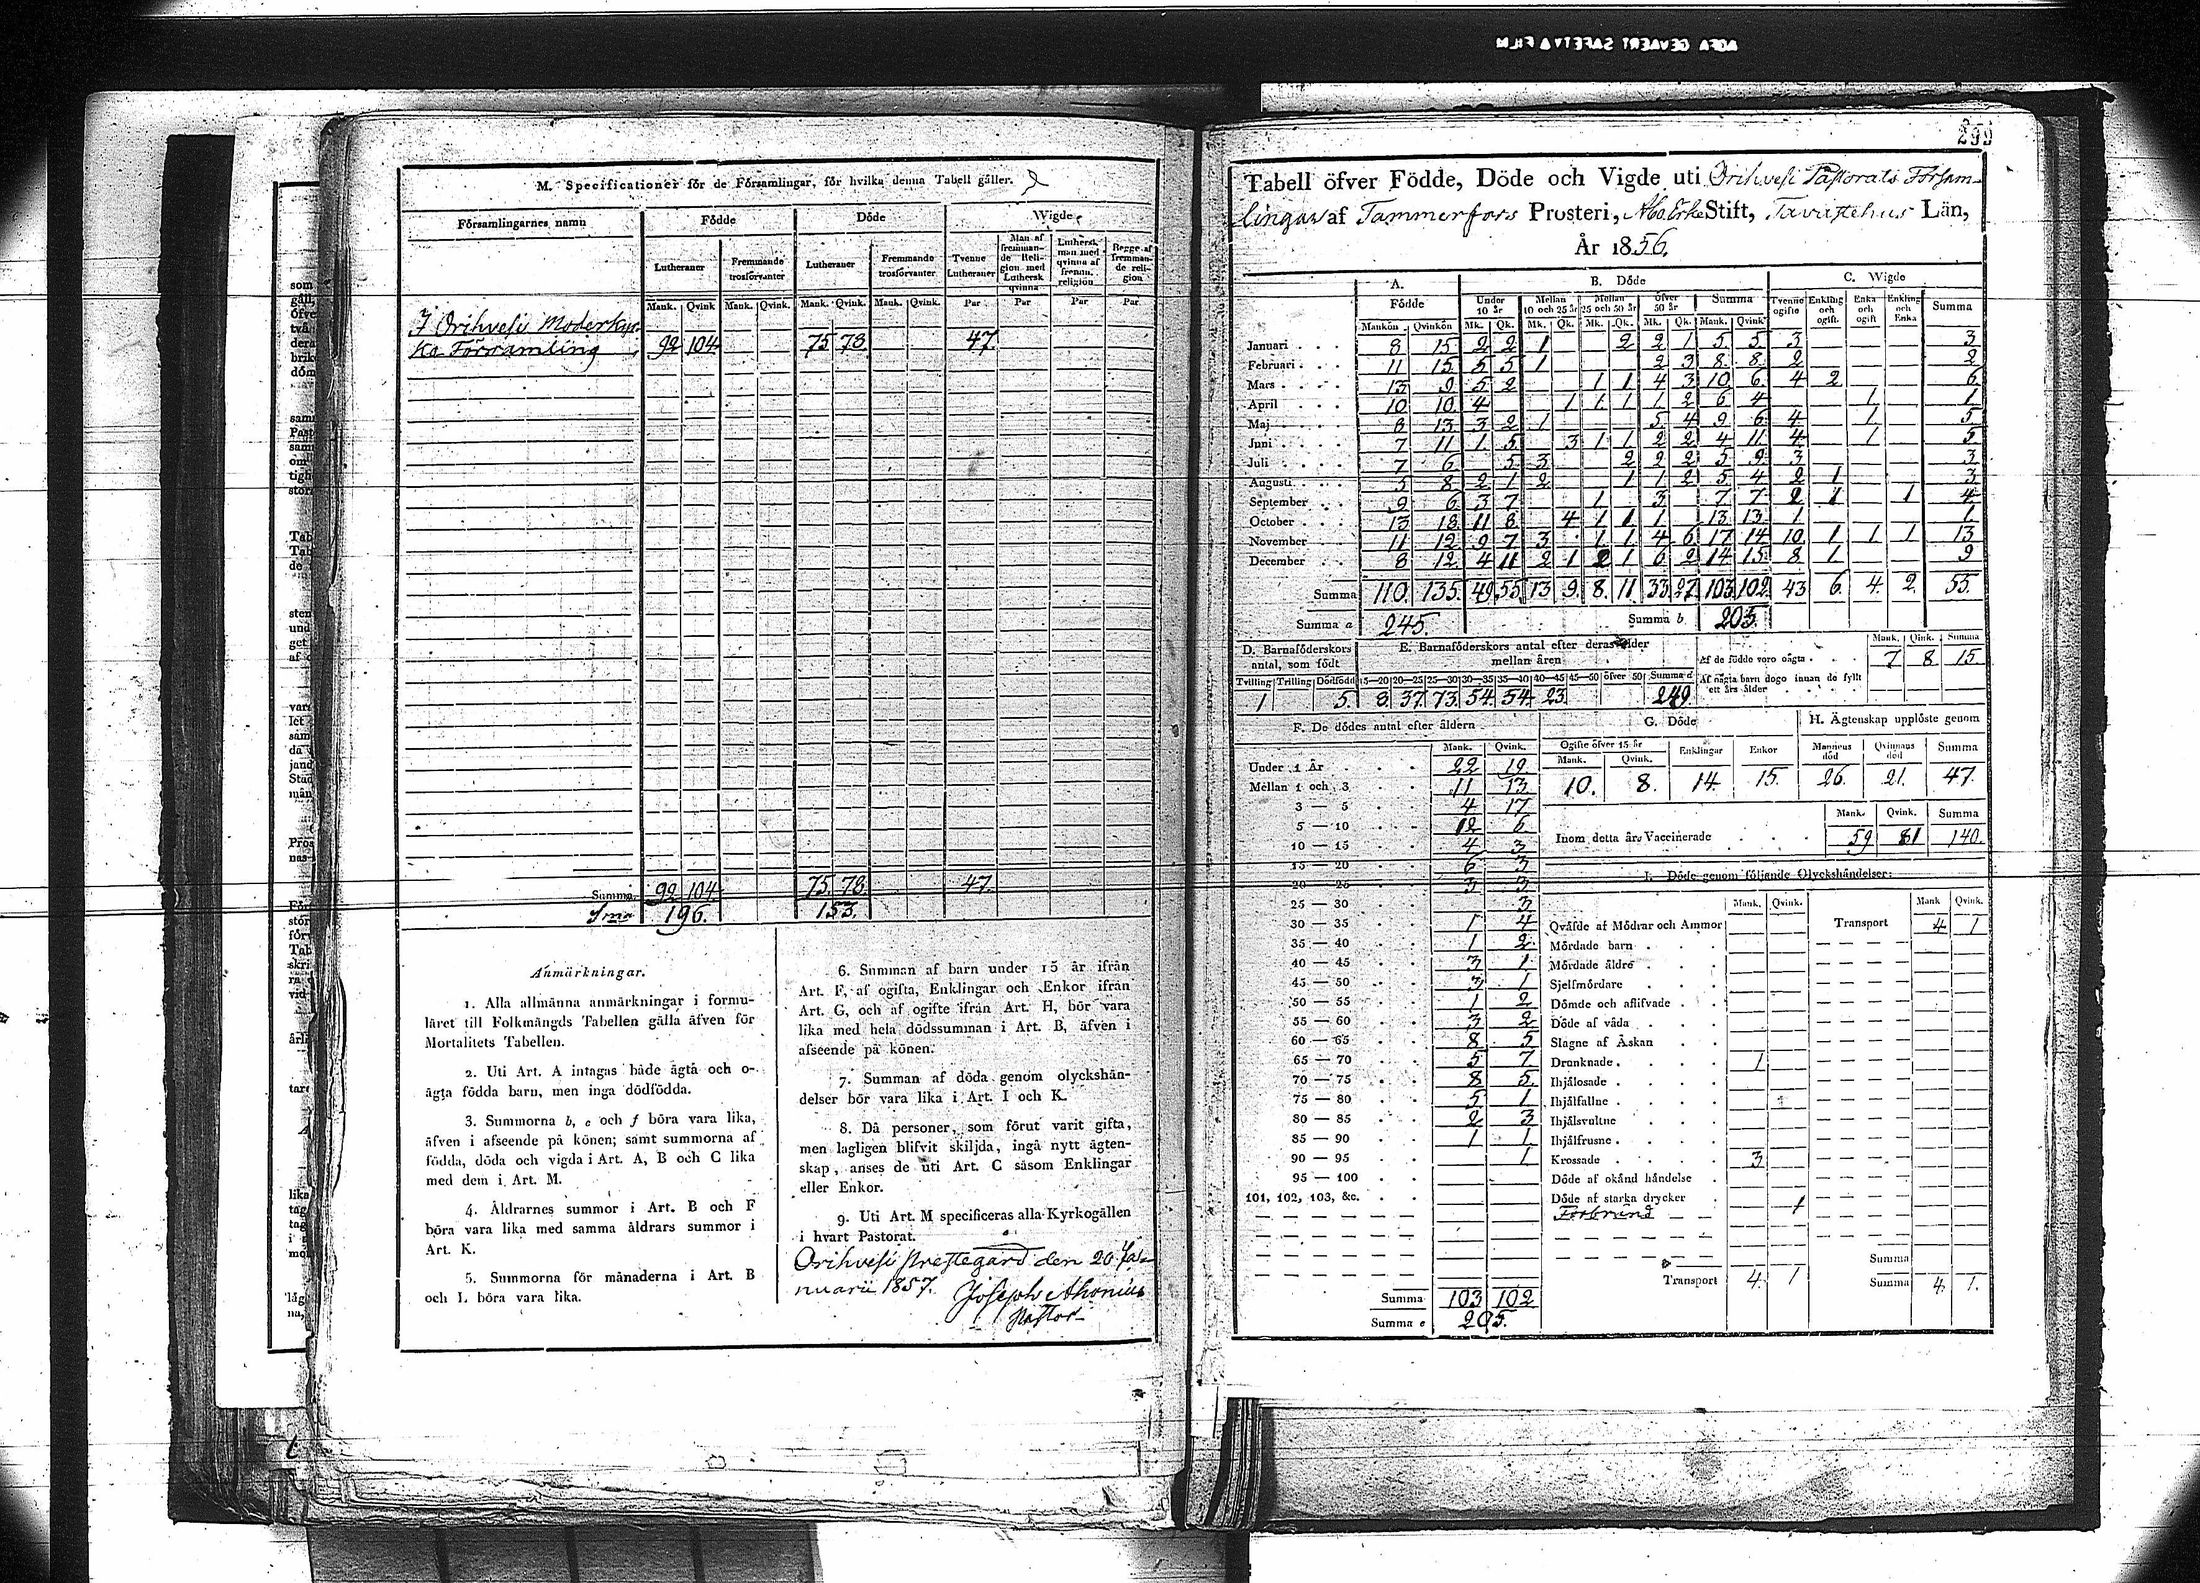 AGFA GEVAERT SAFETY FILM
M. Specificationer för de Församlingar, för hvilka denna Tabell gäller.
Församlingarnes namn | Födde | Döde | Wigde
Lutheraner | Fremmande trosförvanter | Lutheraner | Fremmande trosförvanter | Tvenne Lutheraner | Man af fremmande Religion med Luthersk qvinna | Luthersk man med qvinna af fremm. religion | Begge af fremmande religion
Mank. | Qvink | Mank. | Qvink. | Mank. | Qvink. | Mank. | Qvink. | Par | Par | Par | Par
I Orihvesi Moderkyr-
ko Församling | 92 | 104 | 75 | 78 | 47
Summa | 92 | 104 | 75 | 78 | 47
Sma | 196. | 153.
Anmärkningar.
1. Alla allmänna anmärkningar i formu-
läret till Folkmängds Tabellen gälla äfven för
Mortalitets Tabellen.
2. Uti Art. A intagas både ägta och o-
ägta födda barn, men inga dödfödda.
3. Summorna b, e och f böra vara lika,
äfven i afseende på könen; samt summorna af
födda, döda och vigda i Art. A, B och C lika
med dem i Art. M.
4. Åldrarnes summor i Art. B och F
böra vara lika med samma åldrars summor i
Art. K.
5. Summorna för månaderna i Art. B
och L böra vara lika.
6. Summan af barn under 15 år ifrån
Art. F, af ogifta, Enklingar och Enkor ifrån
Art. G, och af ogifte ifrån Art. H, bör vara
lika med hela dödssumman i Art. B, äfven i
afseende på könen.
7. Summan af döda genom olyckshän-
delser bör vara lika i Art. I och K.
8. Då personer, som förut varit gifta,
men lagligen blifvit skiljda, ingå nytt ägten-
skap, anses de uti Art. C såsom Enklingar
eller Enkor.
9. Uti Art. M specificeras alla Kyrkogällen
i hvart Pastorat.
Orihvesi prestegård den 20 Ja-
nuarii 1857. Joseph Ahonius
Pastor
299
Tabell öfver Födde, Döde och Vigde uti Orihvesi Pastorats Försam-
lingar af Tammerfors Prosteri, Åbo Erke Stift, Tavastehus Län,
År 1856.
A. Födde | B. Döde | C. Wigde
Under 10 år | Mellan 10 och 25 år | Mellan 25 och 50 år | Öfver 50 år | Summa | Tvenne ogifte | Enkling och ogift. | Enka och ogift | Enkling och Enka | Summa
Mankön | Qvinkön | Mk. | Qk. | Mk. | Qk. | Mk. | Qk. | Mk. | Qk. | Mank. | Qvink
Januari | 8 | 15 | 2 | 2 | 1 | | | 2 | 2 | 1 | 5 | 5 | 3 | | | | 3
Februari | 11 | 15 | 5 | 5 | 1 | | | | 2 | 3 | 8 | 8 | 2 | | | | 2
Mars | 13 | 9 | 5 | 2 | | | 1 | 1 | 4 | 3 | 10 | 6 | 4 | 2 | | | 6
April | 10 | 10 | 4 | | | 1 | 1 | 1 | 1 | 2 | 6 | 4 | | | 1 | | 1
Maj | 8 | 13 | 3 | 2 | 1 | | | | 5 | 4 | 9 | 6 | 4 | | 1 | | 5
Juni | 7 | 11 | 1 | 5 | | 3 | 1 | 1 | 2 | 2 | 4 | 11 | 4 | | 1 | | 5
Juli | 7 | 6 | | 5 | 3 | | | 2 | 2 | 2 | 5 | 9 | 3 | | | | 3
Augusti | 5 | 8 | 2 | 1 | 2 | | | 1 | 1 | 2 | 5 | 4 | 2 | 1 | | | 3
September | 9 | 6 | 3 | 7 | | | 1 | | 3 | | 7 | 7 | 2 | 1 | | 1 | 4
October | 13 | 18 | 11 | 8 | | 4 | 1 | 1 | 1 | | 13 | 13 | 1 | | | | 1
November | 11 | 12 | 9 | 7 | 3 | | 1 | 1 | 4 | 6 | 17 | 14 | 10 | 1 | 1 | 1 | 13
December | 8 | 12 | 4 | 11 | 2 | 1 | 2 | 1 | 6 | 2 | 14 | 15 | 8 | 1 | | | 9
Summa | 110. | 135. | 49 | 55 | 13 | 9. | 8. | 11 | 33 | 27 | 103 | 102 | 43 | 6. | 4. | 2. | 55.
Summa a | 245. | Summa b | 205.
D. Barnaföderskors antal, som födt | E. Barnaföderskors antal efter deras ålder mellan åren | Mank. | Qink. | Summa
Af de födde voro oägta | 7 | 8 | 15
Af oägta barn dogo innan de fyllt ett års ålder
Tvilling | Trilling | Dödfödd | 15—20 | 20—25 | 25—30 | 30—35 | 35—40 | 40—45 | 45—50 | öfver 50 | Summa d
1 | | 5. | 8. | 37. | 73. | 54. | 54. | 23. | | | 249
F. De dödes antal efter åldern
Mank. | Qvink.
Under 1 År | 22 | 19
Mellan 1 och 3 | 11 | 13
3 — 5 | 4 | 17
5 — 10 | 12 | 6
10 — 15 | 4 | 3
15 — 20 | 6 | 3
20 — 25 | 3 | 3
25 — 30 | | 3
30 — 35 | 1 | 4
35 — 40 | 1 | 2
40 — 45 | 3 | 1
45 — 50 | 3 | 1
50 — 55 | 1 | 2
55 — 60 | 3 | 2
60 — 65 | 8 | 5
65 — 70 | 5 | 7
70 — 75 | 8 | 5
75 — 80 | 5 | 1
80 — 85 | 2 | 3
85 — 90 | 1 | 1
90 — 95 | | 1
95 — 100
101, 102, 103, &c.
Summa | 103 | 102
Summa e | 205.
G. Döde | H. Ägtenskap upplöste genom
Ogifte öfver 15 år | Enklingar | Enkor | Mannens död | Qvinnans död | Summa
Mank. | Qvink.
10. | 8. | 14. | 15. | 26. | 21. | 47.
Mank. | Qvink. | Summa
Inom detta år Vaccinerade | 59 | 81 | 140.
I. Döde genom följande Olyckshändelser:
Mank. | Qvink. | Mank | Qvink.
Qväfde af Mödrar och Ammor | Transport | 4 | 1
Mördade barn
Mördade äldre
Sjelfmördare
Dömde och aflifvade
Döde af våda
Slagne af Åskan
Drunknade | 1
Ihjälosade
Ihjälfallne
Ihjälsvultne
Ihjälfrusne
Krossade | 3
Döde af okänd händelse
Döde af starka drycker
Förbränd | | 1
Summa
Transport | 4. | 1 | Summa | 4. | 1.